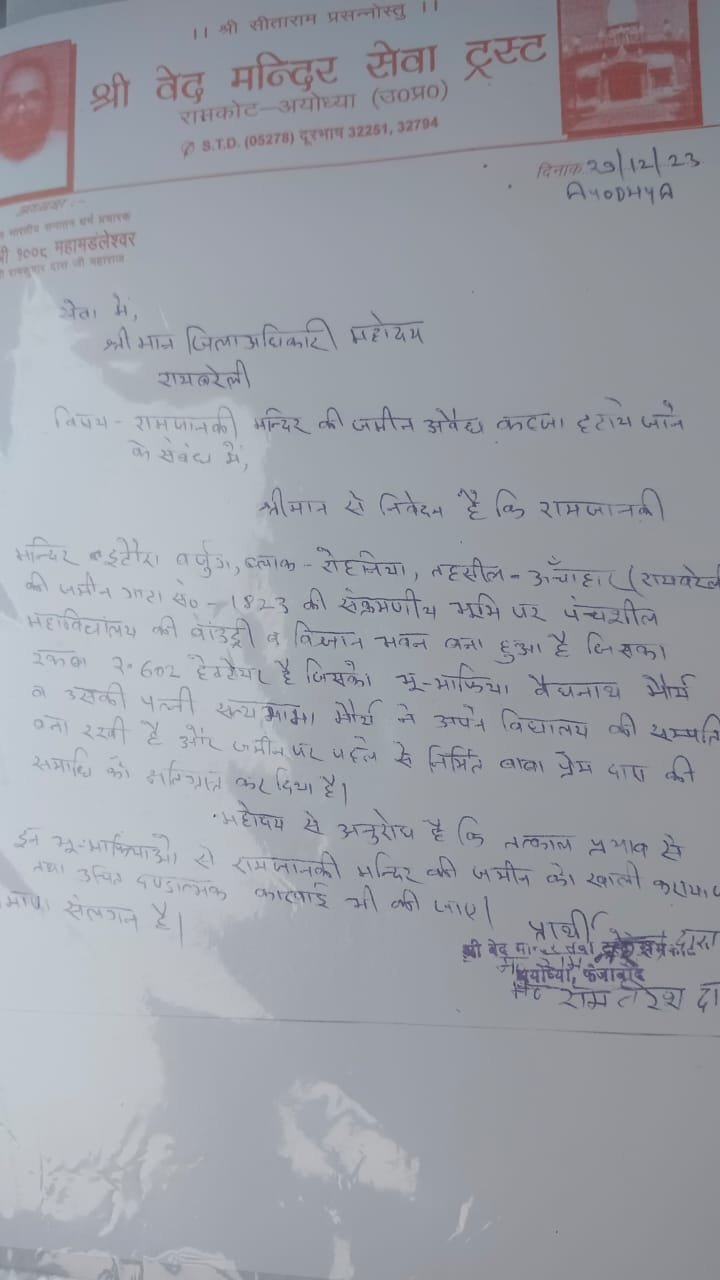 ।। श्री सीताराम प्रसन्नोस्तु ।।
श्री वेद मन्दिर सेवा ट्रस्ट
रामकोट–अयोध्या (उ०प्र०)
S.T.D. (05278) दूरभाष 32251, 32794
दिनांक 29/12/23
AYODHYA
अध्यक्ष :-
भारतीय सनातन धर्म प्रचारक
श्री १००८ महामडंलेश्वर
रामकुमार दास जी महाराज
सेवा में,
श्रीमान जिलाअधिकारी महोदय
रायबरेली
विषय - रामजानकी मन्दिर की जमीन अवैध कब्जा हटाये जाने
के संबंध में,
श्रीमान से निवेदन है कि रामजानकी
मन्दिर इटौरा बुर्जुग, ब्लाक - रोहनिया, तहसील - ऊँचाहार (रायबरेली
की जमीन गाटा सं० - 1823 की संक्रमणीय भूमि पर पंचशील
महाविद्यालय की बाउंड्री व विज्ञान भवन बना हुआ है जिसका
रकबा २.602 हेक्टेयर है जिसको भू-माफिया बैधनाथ मौर्य
व उसकी पत्नी सत्यभामा मौर्य ने अपने विद्यालय की सम्पत्ति
बना रखी है और जमीन पर पहले से निर्मित बाबा प्रेम दास की
समाधि को क्षतिग्रस्त कर दिया है।
महोदय से अनुरोध है कि तत्काल प्रभाव से
इन भू-माफियाओं से रामजानकी मन्दिर की जमीन को खाली कराया
तथा उचित दण्डात्मक कारवाई भी की जाए।
संलगन है।
प्रार्थी
श्री वेद
अयोध्या, फैजाबाद